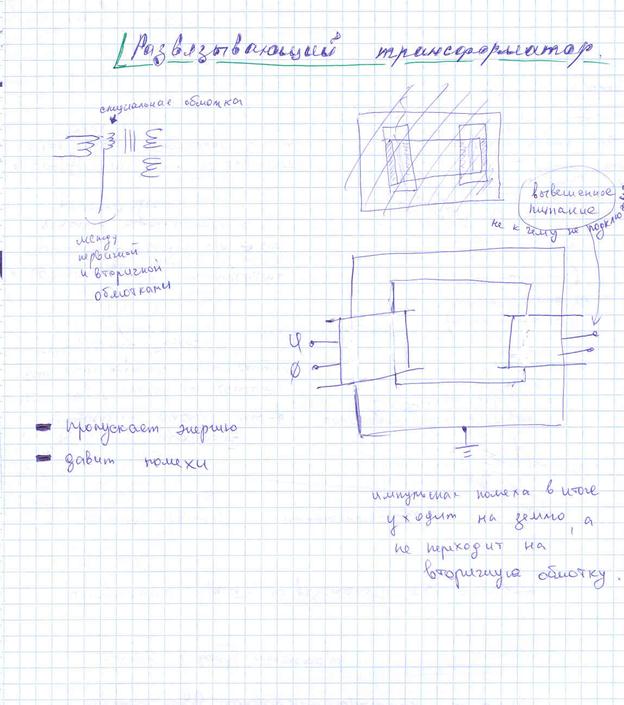 Развязывающий трансформатор.
специальная обмотка
между
первичной
и вторичной
обмотками
вывешенное
питание
не к чему не подключ
Ч
Ф
пропускает энергию
давит помехи
импульсная помеха в итоге
уходит на землю, а
не переходит на
вторичную обмотку.